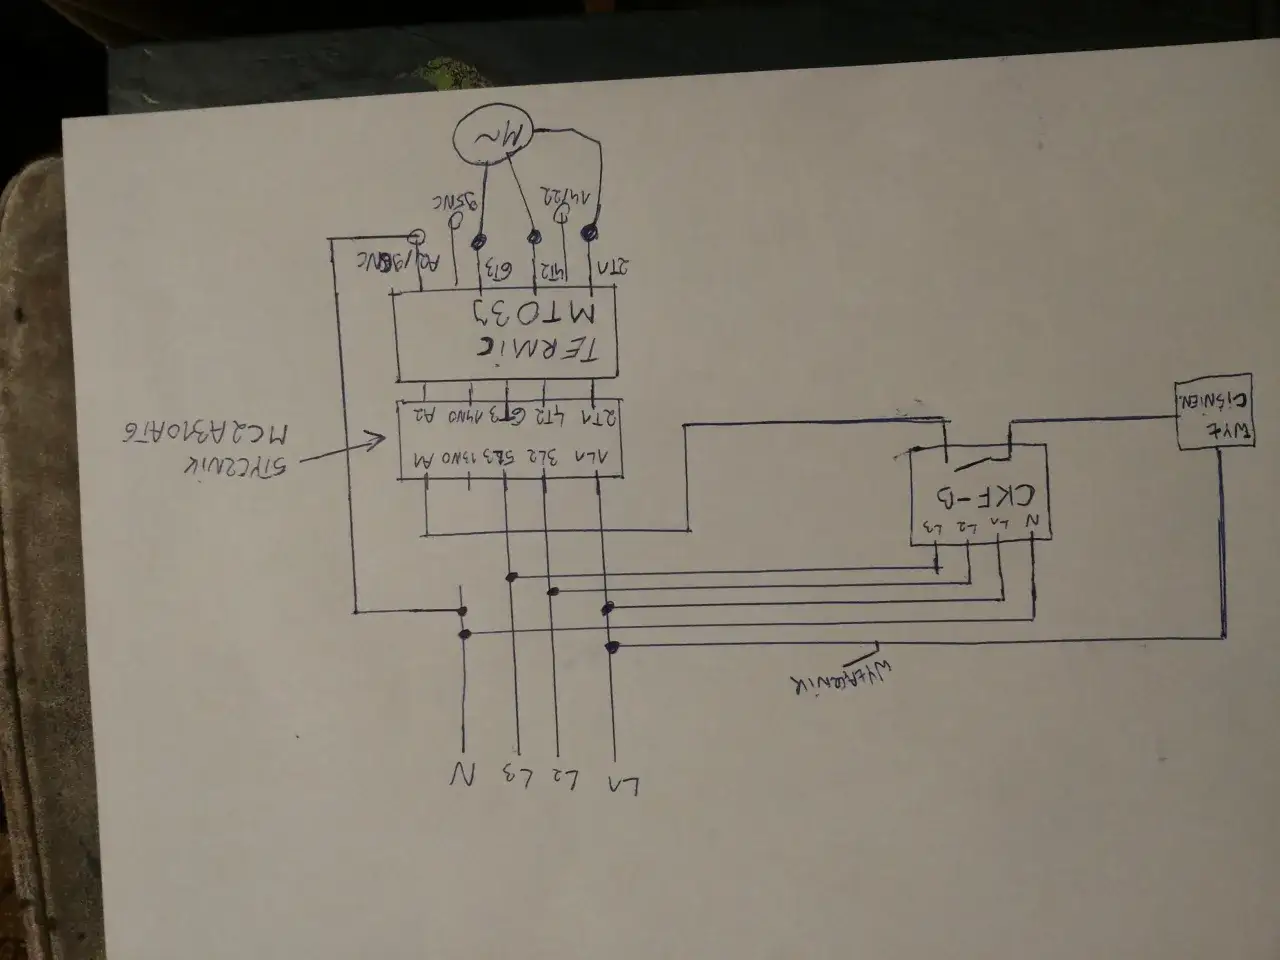 L1 L2 L3 N
WYŁĄCZNIK
N L1 L2 L3
CKF-B
WYŁ
CIŚNIEN.
1L1 3L2 5L3 13NO A1
2T1 4T2 6T3 14NO A2
STYCZNIK
MC2A310AT6
TERMIC
MT03
2T1 4T2 6T3 A2/96NC
14/22 95NC
M~